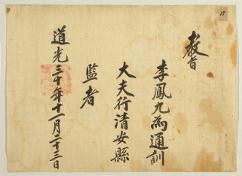 敎旨
李鳳九爲通訓
大夫行清安縣
監者
道光三十年十一月二十三日